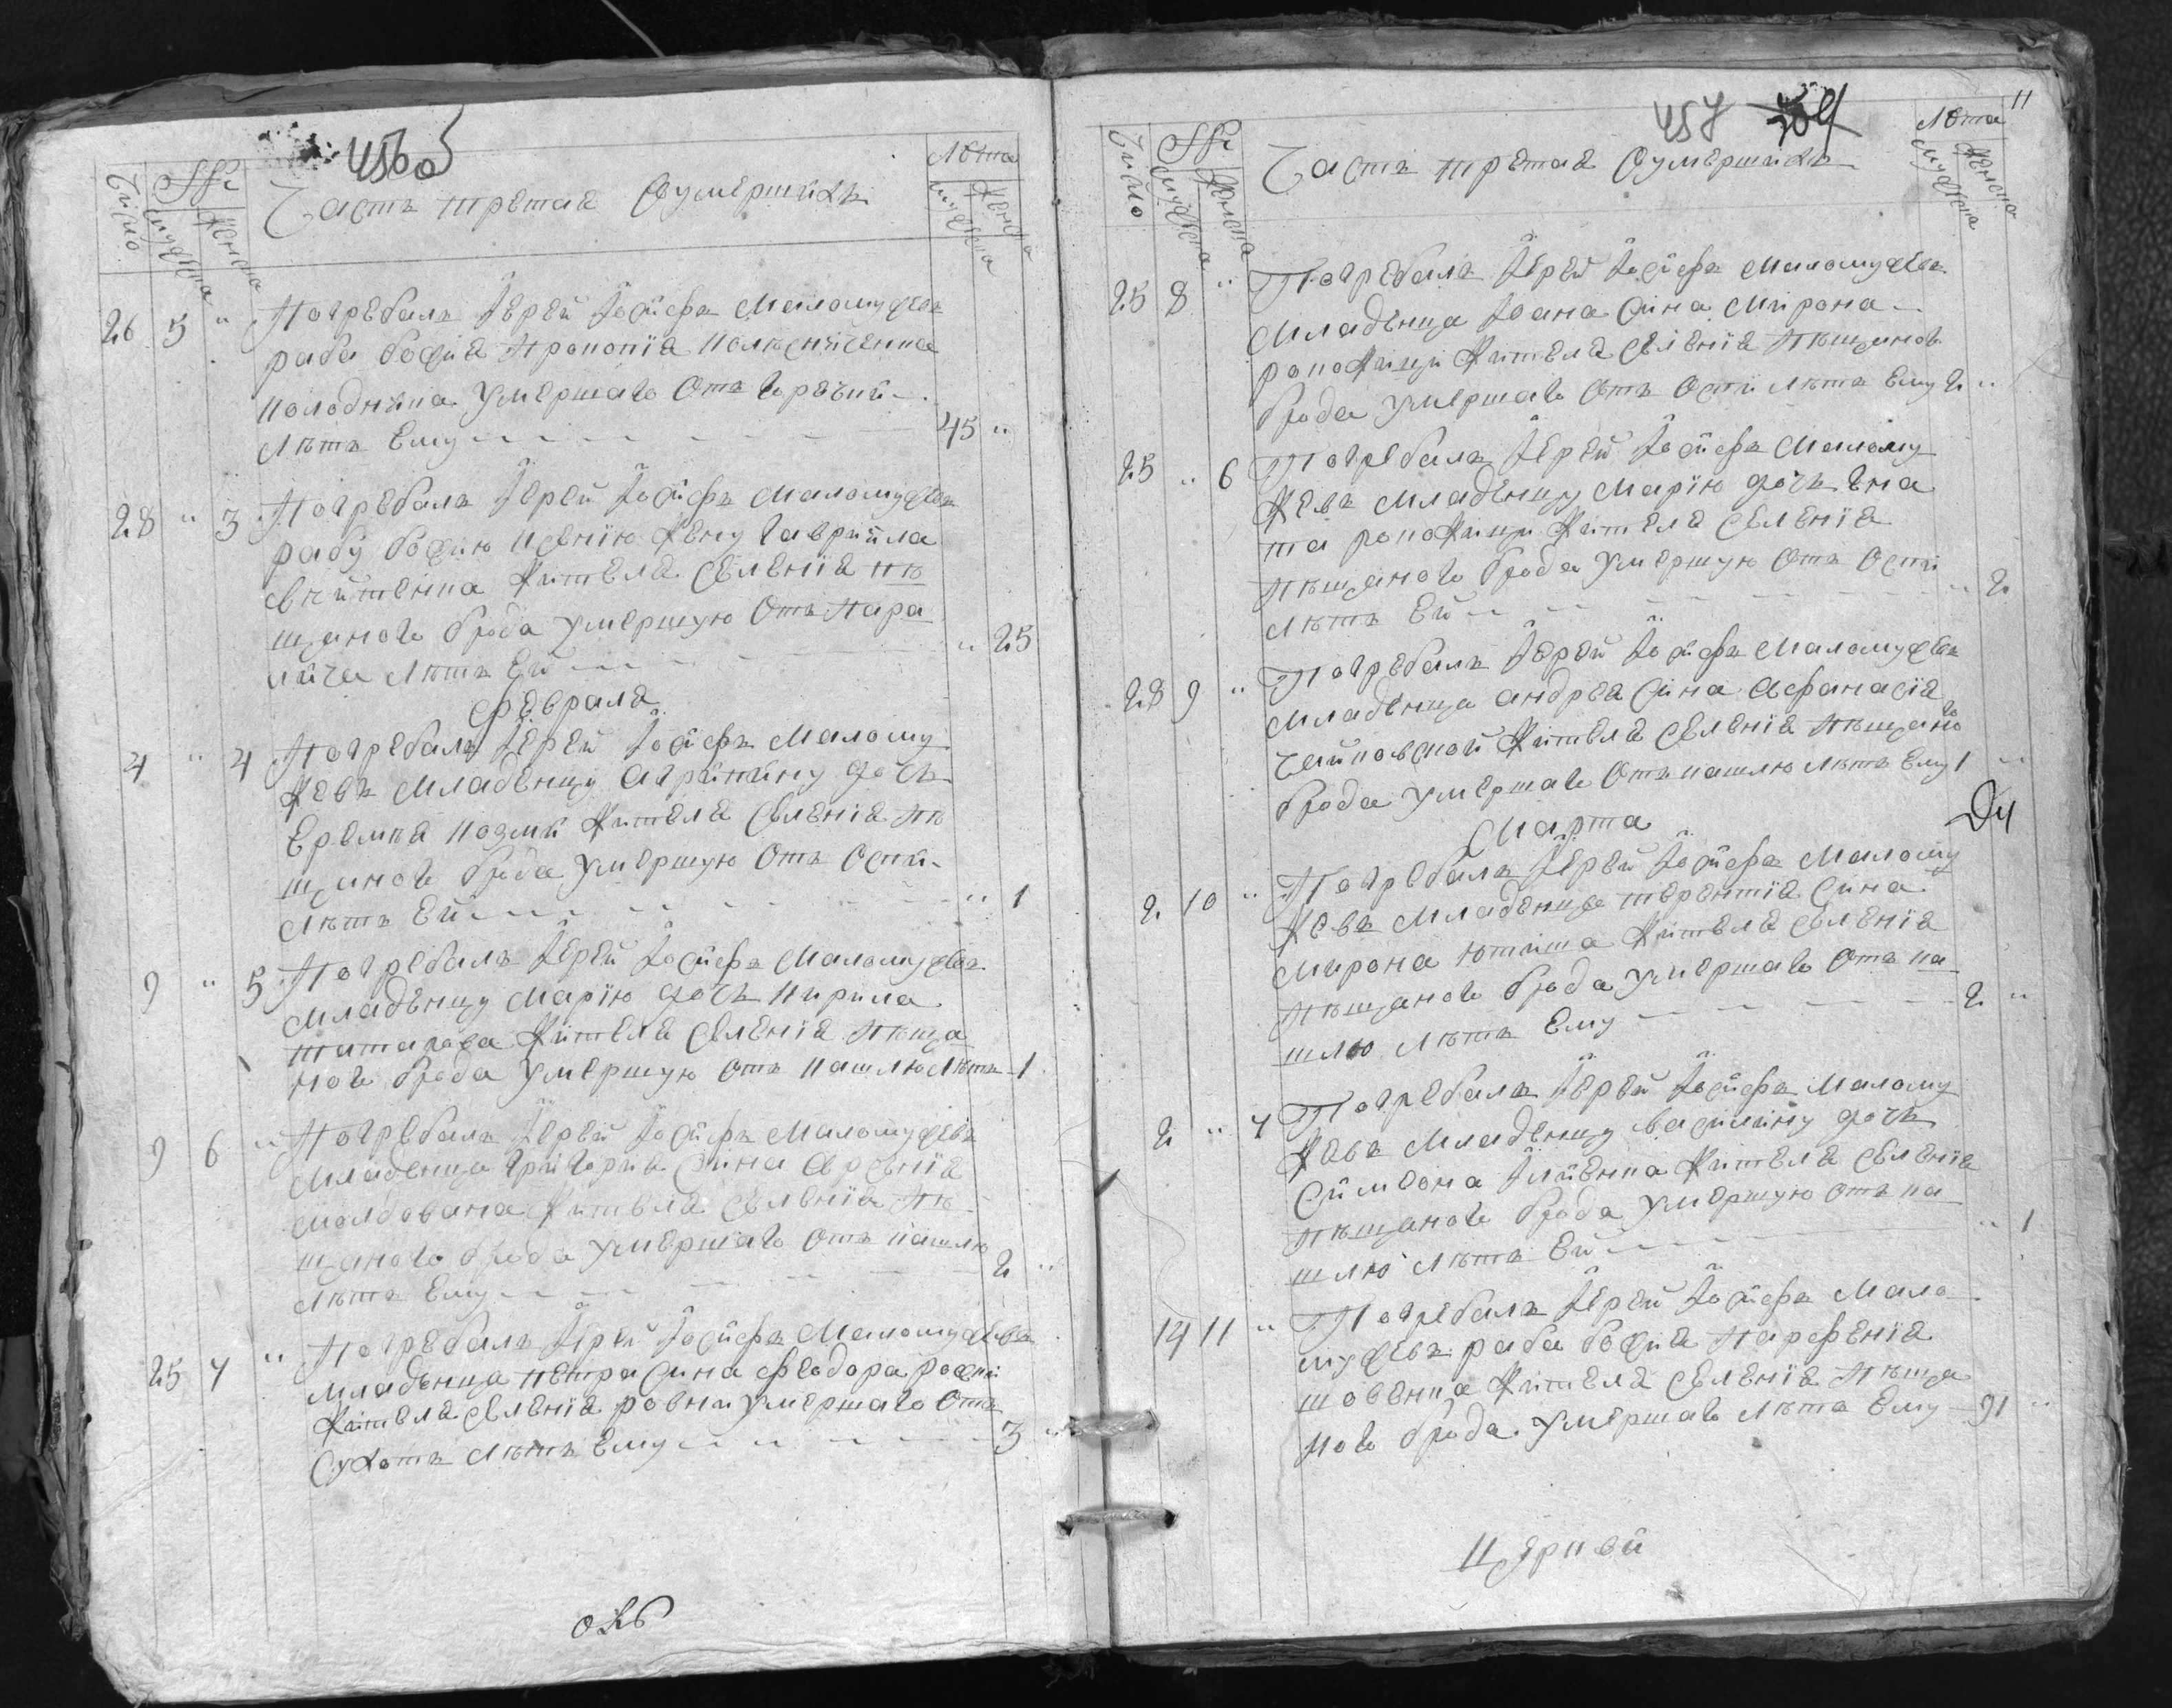 456 об
Число № мужеска женска
Часть третая Оумершихъ
Лѣта мужеска женска
26 5 " Погребалъ Іерей Іосифъ Маломужевъ
раба божия Прокопія колѣсниченка
колодника умершаго Отъ горячки
Лѣтъ Ему 45 "
28 " 3 Погребалъ Іерей Іосифъ Маломужевъ
рабу божию ксению жену гаврыила
жителя Селенія пѣ
щаного брода умершую Отъ пара
лича Лѣтъ Ей " 25
Февраля
4 " 4 Погребалъ Іерей Іосифъ Малому
жевъ младенцу агрипину дочъ
Еремѣя козми жителя Селенія пѣ
щаного брода умершую Отъ Оспи
Лѣтъ Ей " 1
9 " 5 Погребалъ Іерей Іосифъ Маломужевъ
младенцу Марію дочъ кирила
жителя Селенія пѣща
ного брода умершую отъ кашлю Лѣтъ 1
9 6 " Погребалъ Іерей Іосифъ Маломужевъ
младенца григория Сина арсенія
молдована жителя Селенія пѣ
щаного брода умершаго Отъ кашлю
Лѣтъ Ему 2 "
25 7 " Погребалъ Іерей Іосифъ Маломужевъ
младенца петра Сина феодора
жителя Селенія ровни умершаго Отъ
Сухотъ Лѣтъ Ему 3 "
457 11
Число № мужеска женска
Часть третая Оумершихъ
Лѣта мужеска женска
25 8 " Погребалъ Іерей Іосифъ Маломужевъ
Младенца Іоана Сина Мирона
рокожици жителя Селенія пѣщаного
брода умершаго Отъ Оспи Лѣта Ему 2 "
25 " 6 Погребалъ Іерей Іосифъ Малому
жевъ младенцу Марію дочъ игна
та рокожици жителя Селенія
пѣщаного брода умершую Отъ Оспи
Лѣтъ Ей " 2
28 9 " Погребалъ Іерей Іосифъ Маломужевъ
младенца андрея Сина афанасія
чайковской жителя Селенія пѣщаного
брода умершаго Отъ кашлю Лѣтъ Ему 1 "
Марта
2 10 " Погребалъ Іерей Іосифъ Малому
жевъ младенца терентія Сина
Мирона ютиша жителя Селенія
пѣщаного брода умершаго Отъ ка
шлю Лѣтъ Ему 2 "
2 " 7 Погребалъ Іерей Іосифъ Малому
жевъ младенцу василину дочъ
Симеона Іліенка жителя Селенія
пѣщаного брода умершую отъ ка
шлю Лѣтъ Ей " 1
14 11 " Погребалъ Іерей Іосифъ Мало
мужевъ раба божия парфенія
шовенка жителя Селенія пѣща
ного брода умершаго Лѣта Ему 91 "
Церкви